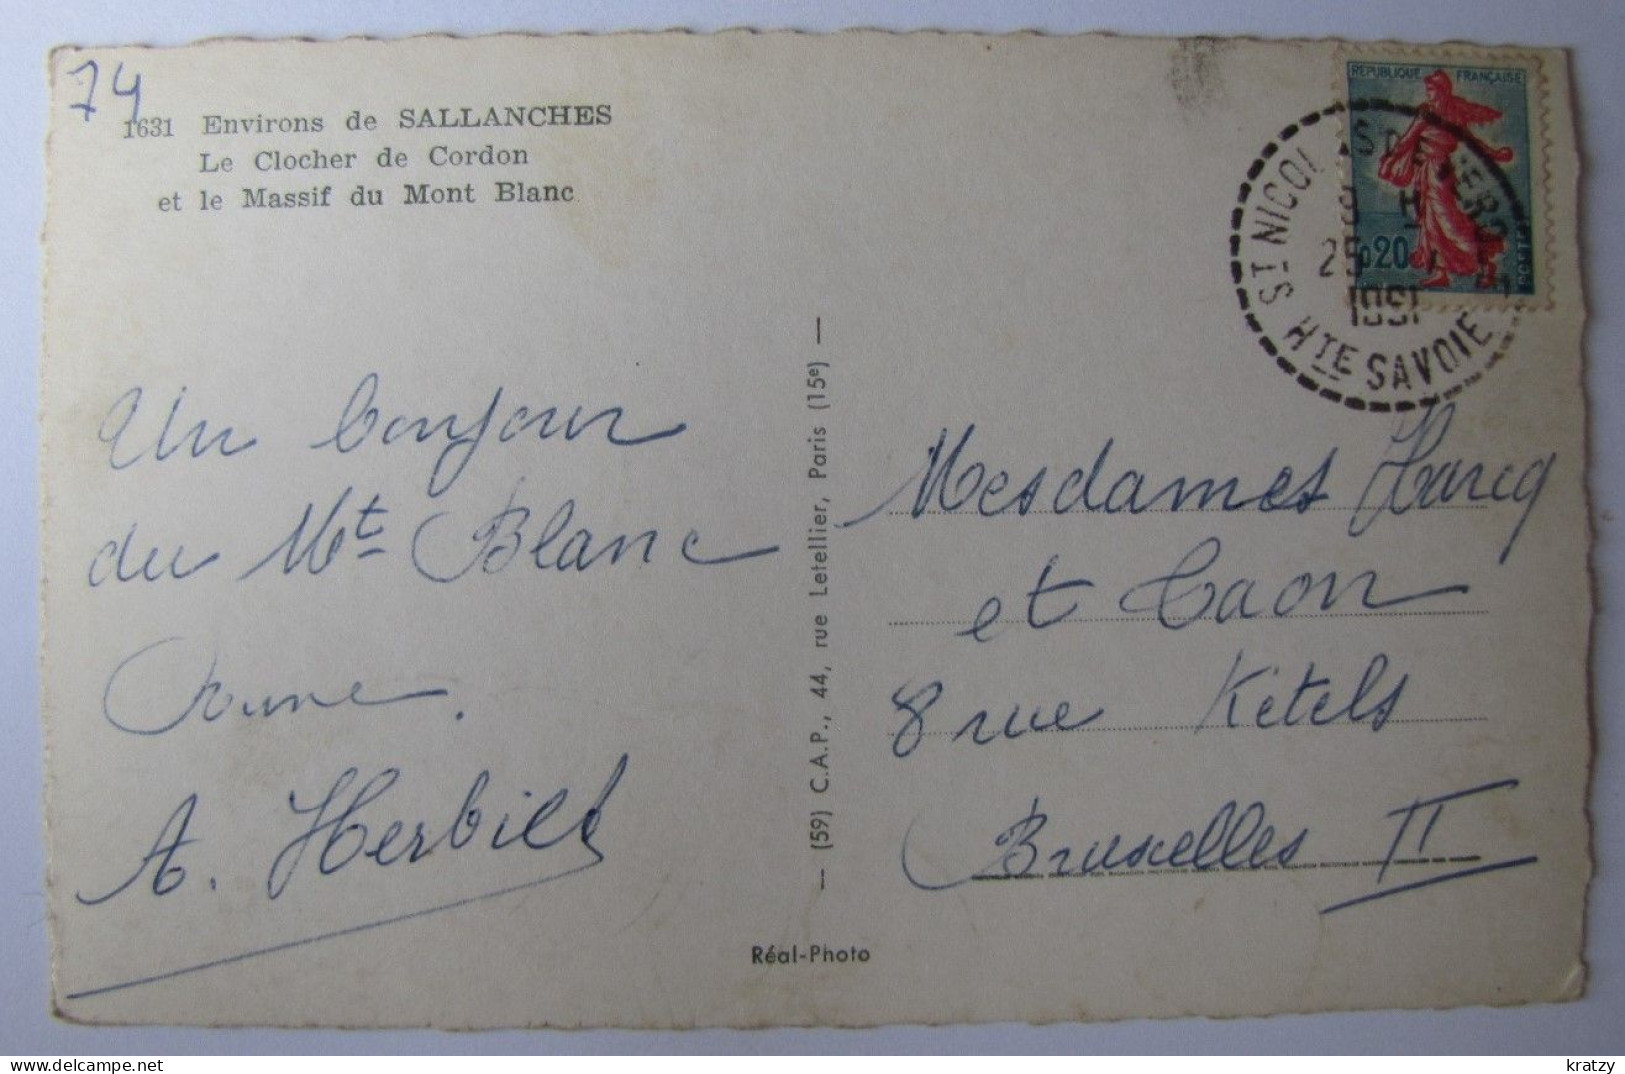 74
1631 Environs de SALLANCHES
Le Clocher de Cordon
et le Massif du Mont Blanc
REPUBLIQUE FRANÇAISE
0,20
POSTES
ST NICOL S DE VERO
8 H
25
HTE SAVOIE
Un bonjour
du Mt Blanc
A. Herbiet
— (59) C.A.P., 44, rue Letellier, Paris (15e) —
Mesdames
et
8 rue Ketels
Bruxelles II
Réal-Photo
kratzy